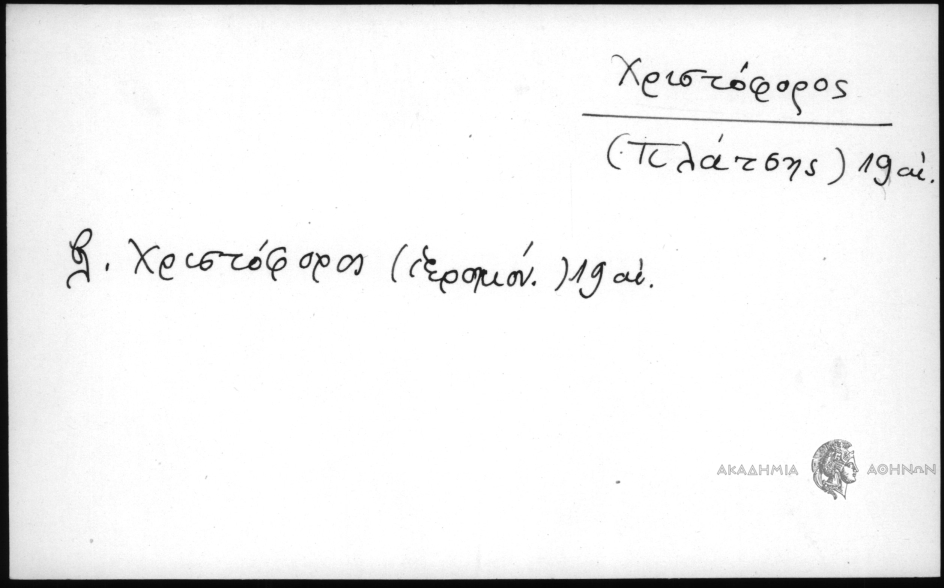 Χριστόφορος
(Πλάτσης) 19 αἰ.
β. Χριστόφορος (ἱερομόν.) 19 αἰ.
ΑΚΑΔΗΜΙΑ ΑΘΗΝΩΝ